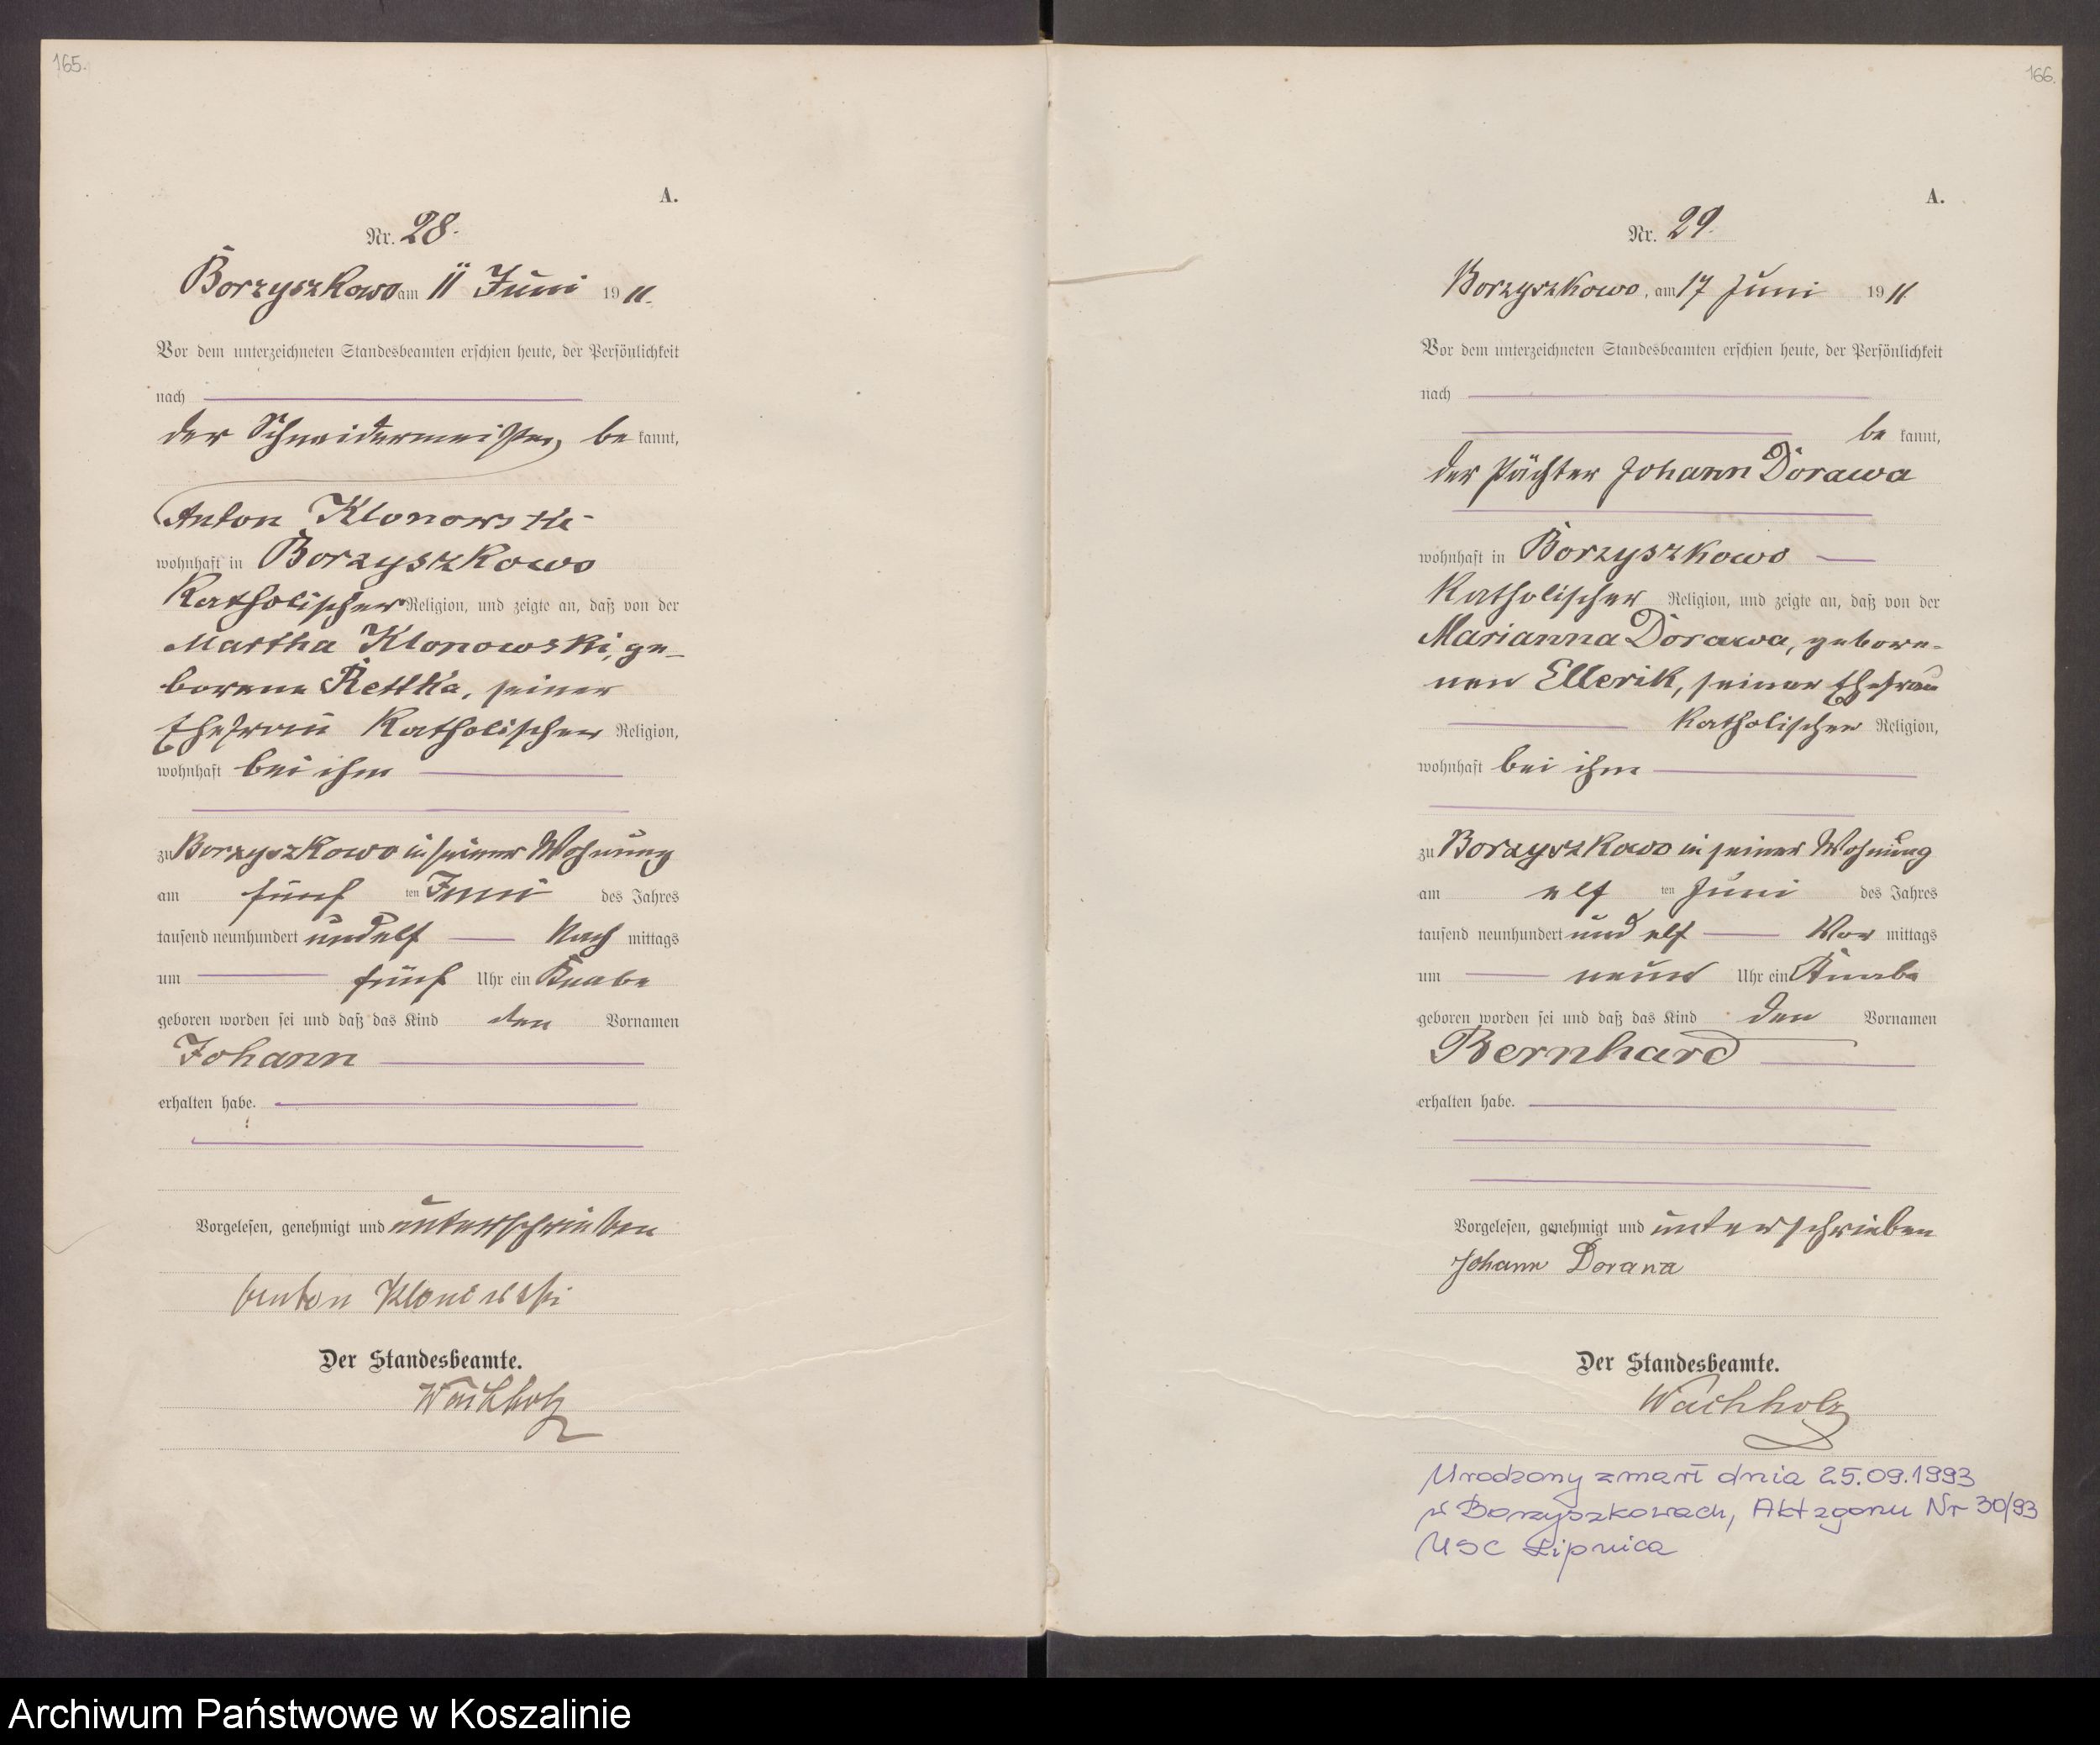 165.
A.
Nr. 28.
Borzyszkowo am 11 Juni 1911.
Vor dem unterzeichneten Standesbeamten erschien heute, der Persönlichkeit
nach
der Schneidermeister, be kannt,
Anton Klonowski
wohnhaft in Borzyszkowo
Katholischer Religion, und zeigte an, daß von der
Martha Klonowski, ge-
borene Rettka, seiner
Ehefrau Katholischer Religion,
wohnhaft bei ihm
zu Borzyszkowo in seiner Wohnung
am fünf ten Juni des Jahres
tausend neunhundert und elf Nach mittags
um fünf Uhr ein Knabe
geboren worden sei und daß das Kind den Vornamen
Johann
erhalten habe.
Vorgelesen, genehmigt und unterschrieben
Anton Klonowski
Der Standesbeamte.
Wachholz
166.
A.
Nr. 29.
Borzyszkowo, am 17 Juni 1911
Vor dem unterzeichneten Standesbeamten erschien heute, der Persönlichkeit
nach
be kannt,
der Pächter Johann Dorawa
wohnhaft in Borzyszkowo
Katholischer Religion, und zeigte an, daß von der
Marianna Dorawa, gebore-
nen Ellerik, seiner Ehefrau
Katholischer Religion,
wohnhaft bei ihm
zu Borzyszkowo in seiner Wohnung
am elf ten Juni des Jahres
tausend neunhundert und elf Vor mittags
um neun Uhr ein Knabe
geboren worden sei und daß das Kind den Vornamen
Bernhard
erhalten habe.
Vorgelesen, genehmigt und unterschrieben
Johann Dorawa
Der Standesbeamte.
Wachholz
Urodzony zmarł dnia 25.09.1993
w Borzyszkowach, Akt zgonu Nr 30/93
USC Lipnica
Archiwum Państwowe w Koszalinie